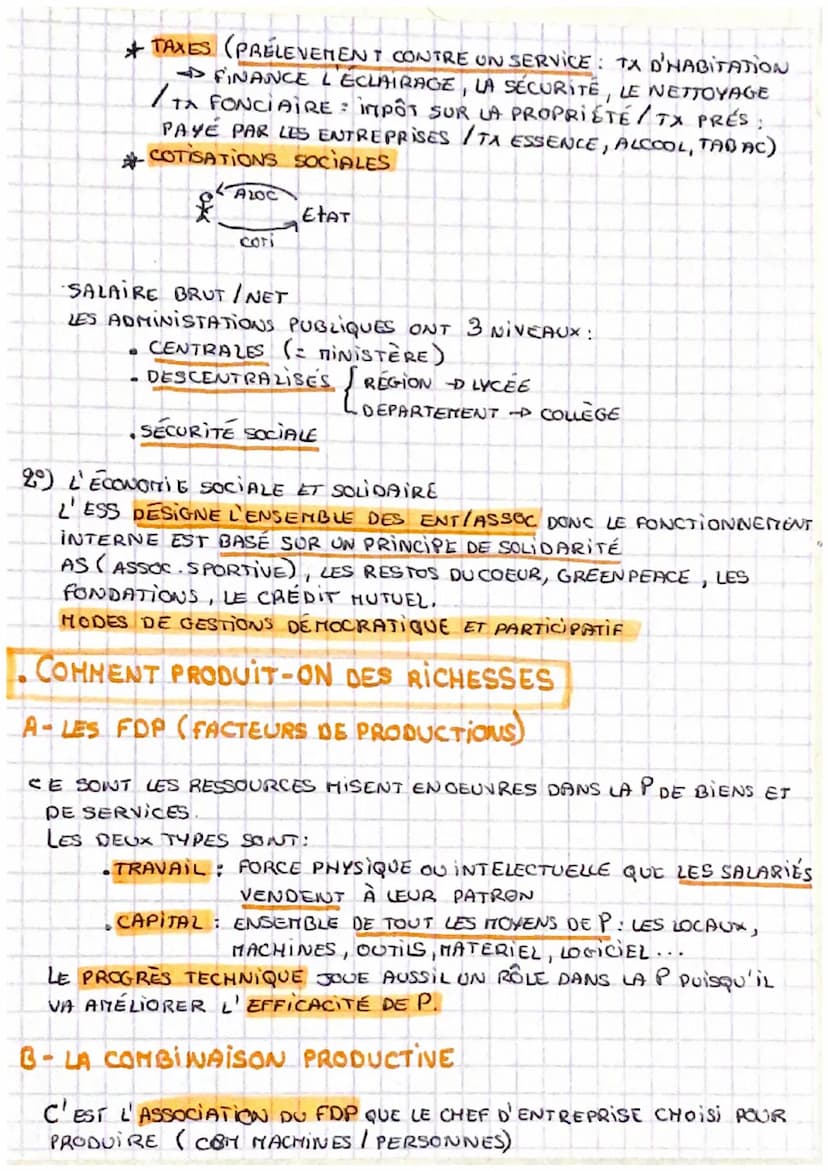 * TAXES (PRÉLEVEMENT CONTRE UN SERVICE : TX D'HABITATION
→ FINANCE L'ÉCLAIRAGE, LA SÉCURITÉ, LE NETTOYAGE
/ TX FONCIAIRE : IMPÔT SUR LA PROPRIÉTÉ / TX PRÉS :
PAYÉ PAR LES ENTREPRISES / TX ESSENCE, ALCOOL, TABAC)
* COTISATIONS SOCIALES
ALOC
ETAT
COTI
SALAIRE BRUT / NET
LES ADMINISTATIONS PUBLIQUES ONT 3 NIVEAUX :
• CENTRALES (= MINISTÈRE)
• DESCENTRALISÉS { RÉGION → LYCÉE
DEPARTEMENT → COLLÈGE
• SÉCURITÉ SOCIALE
2°) L'ÉCONOMIE SOCIALE ET SOLIDAIRE
L'ESS DÉSIGNE L'ENSEMBLE DES ENT/ASSOC DONC LE FONCTIONNEMENT
INTERNE EST BASÉ SUR UN PRINCIPE DE SOLIDARITÉ
AS (ASSOC. SPORTIVE), LES RESTOS DU COEUR, GREENPEACE, LES
FONDATIONS, LE CRÉDIT MUTUEL.
MODES DE GESTIONS DÉMOCRATIQUE ET PARTICIPATIF
. COMMENT PRODUIT-ON DES RICHESSES
A - LES FDP (FACTEURS DE PRODUCTIONS)
CE SONT LES RESSOURCES MISENT EN OEUVRES DANS LA P DE BIENS ET
DE SERVICES.
LES DEUX TYPES SONT :
• TRAVAIL : FORCE PHYSIQUE OU INTELECTUELLE QUE LES SALARIÉS
VENDENT À LEUR PATRON
• CAPITAL : ENSEMBLE DE TOUT LES MOYENS DE P : LES LOCAUX,
MACHINES, OUTILS, MATERIEL, LOGICIEL ...
LE PROGRÈS TECHNIQUE JOUE AUSSIL UN RÔLE DANS LA P PUISQU'IL
VA AMÉLIORER L'EFFICACITÉ DE P.
B - LA COMBINAISON PRODUCTIVE
C'EST L'ASSOCIATION DU FDP QUE LE CHEF D'ENTREPRISE CHOISI POUR
PRODUIRE ( CBM MACHINES / PERSONNES)